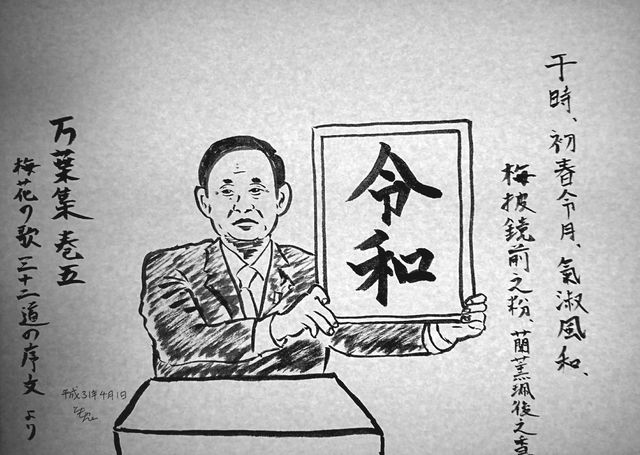 于時、初春令月、氣淑風和、
梅披鏡前之粉、蘭薫珮後之香
令和
万葉集 巻五
梅花の歌 三十二道の序文 より
平成31年4月1日